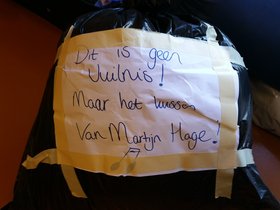 Dit is geen
Vuilnis!
Maar het kussen
Van Martijn Hage!